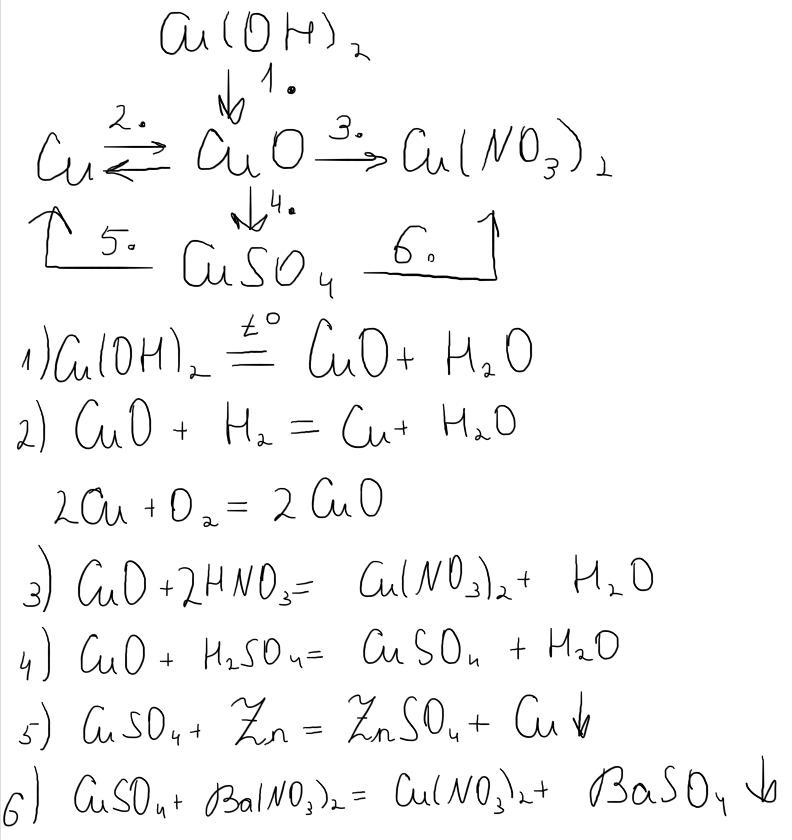 Cu(OH)₂
↓ 1.
Cu ⇄ 2. CuO → 3. Cu(NO₃)₂
↓ 4.
↑ 5. CuSO₄ 6. ↑
1) Cu(OH)₂ =t°= CuO + H₂O
2) CuO + H₂ = Cu + H₂O
2Cu + O₂ = 2CuO
3) CuO + 2HNO₃ = Cu(NO₃)₂ + H₂O
4) CuO + H₂SO₄ = CuSO₄ + H₂O
5) CuSO₄ + Zn = ZnSO₄ + Cu↓
6) CuSO₄ + Ba(NO₃)₂ = Cu(NO₃)₂ + BaSO₄↓